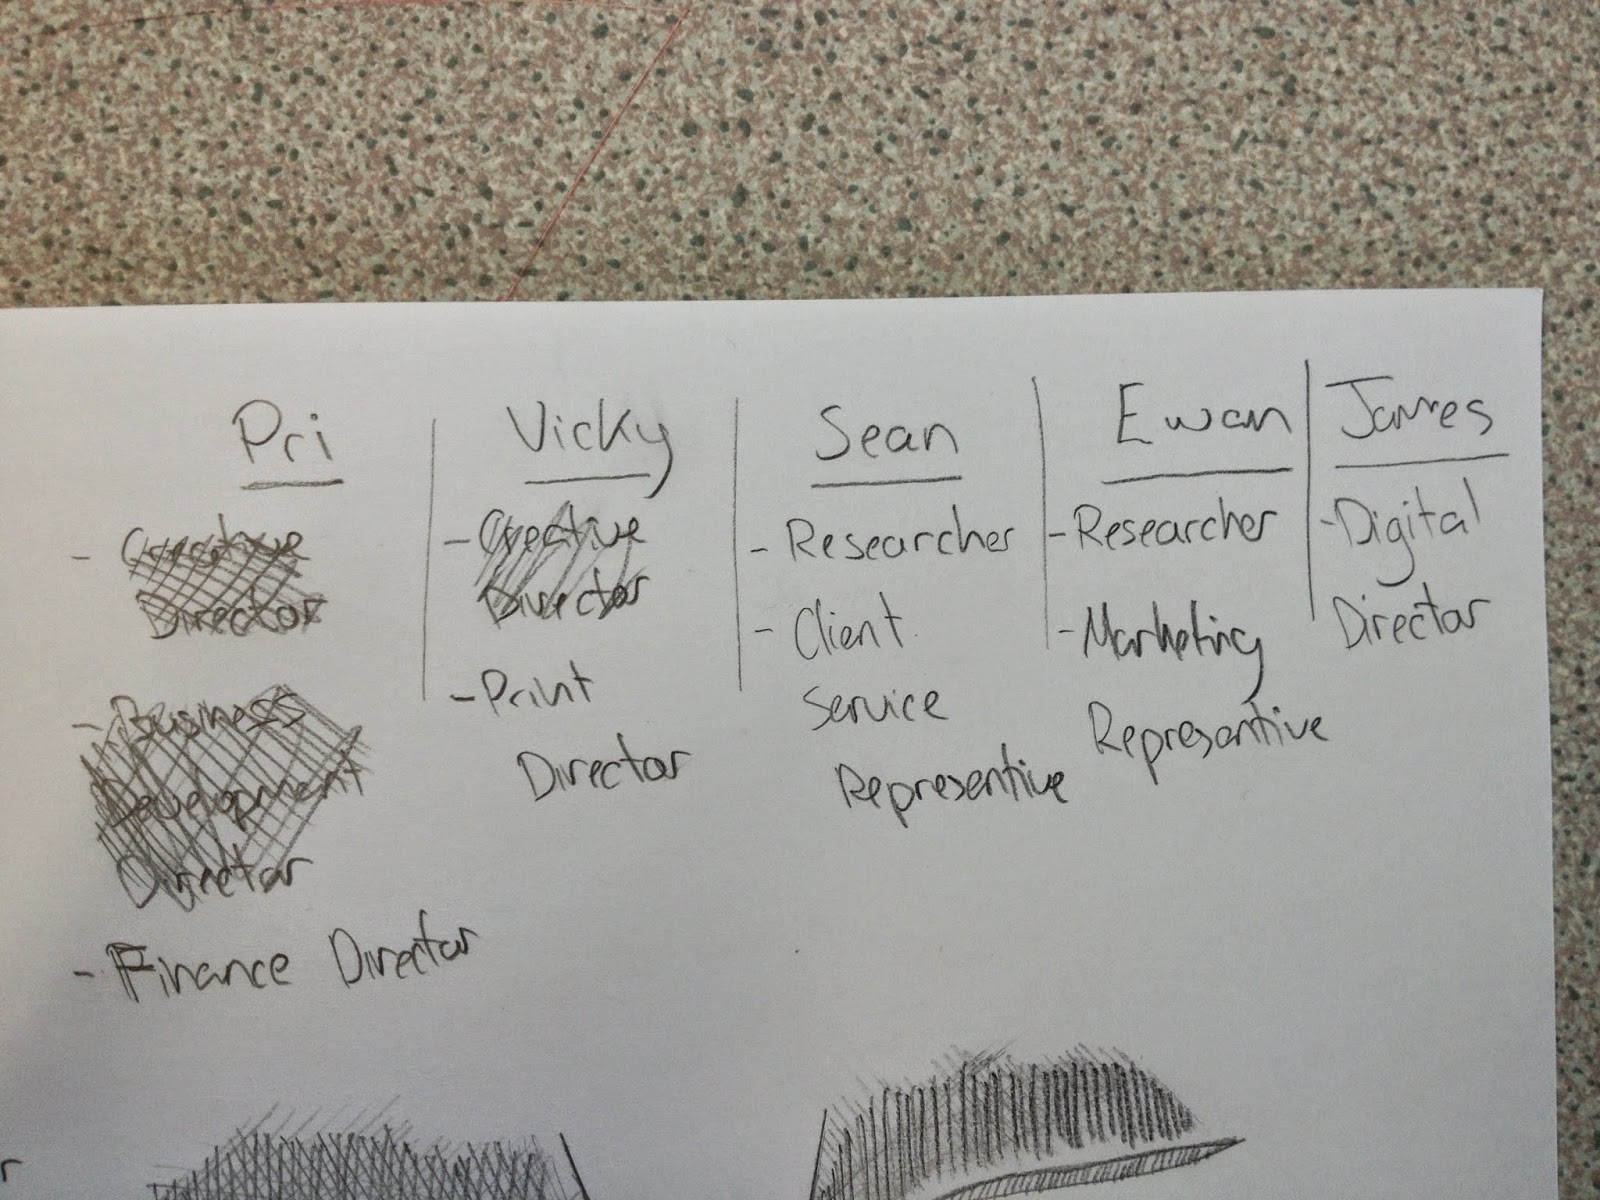 Pri
- Creative
Director
- Business
Development
Director
- Finance Director
Vicky
- Creative
Director
- Print
Director
Sean
- Researcher
- Client
Service
Representive
Ewan
- Researcher
- Marketing
Represantive
James
- Digital
Director